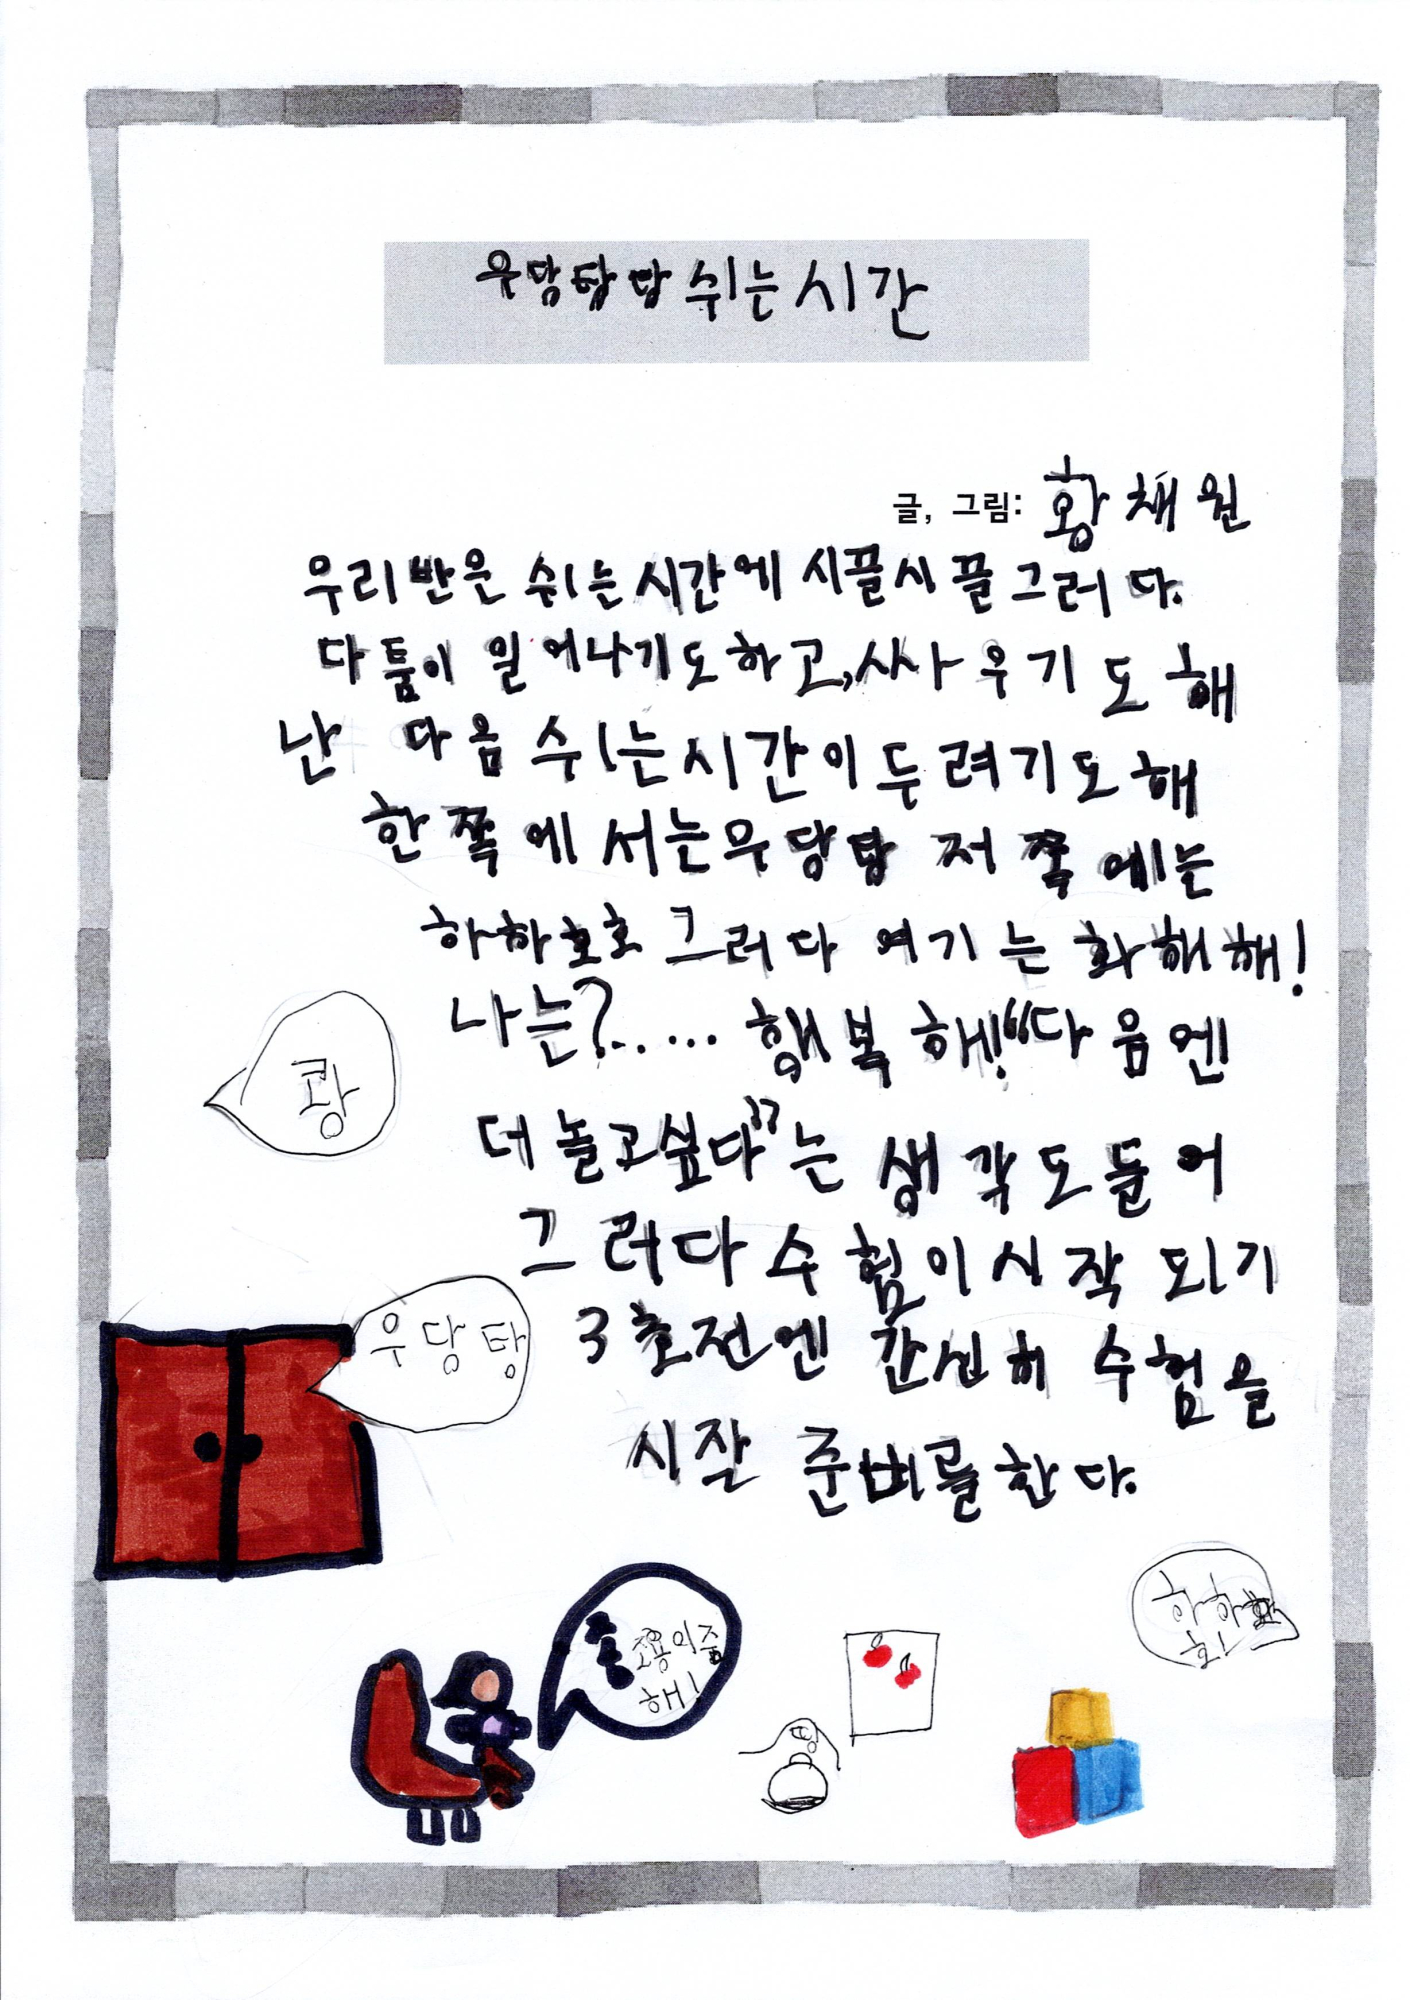 우당탕탕 쉬는 시간
글, 그림: 황채원
우리반은 쉬는 시간에 시끌시끌 그러다.
다툼이 일어나기도하고, 싸우기도 해
난 다음 쉬는시간이 두려기도 해
한쪽에서는우당탕 저쪽에는
하하호호 그러다 여기는 화해해!
나는?..... 행복해! "다음엔
더놀고싶다"는 생각도들어
그러다 수험이시작 되기
3초전엔 간신히 수험을
시작 준비를한다.
쾅
우당탕
조용이좀
해!
하하호
호!